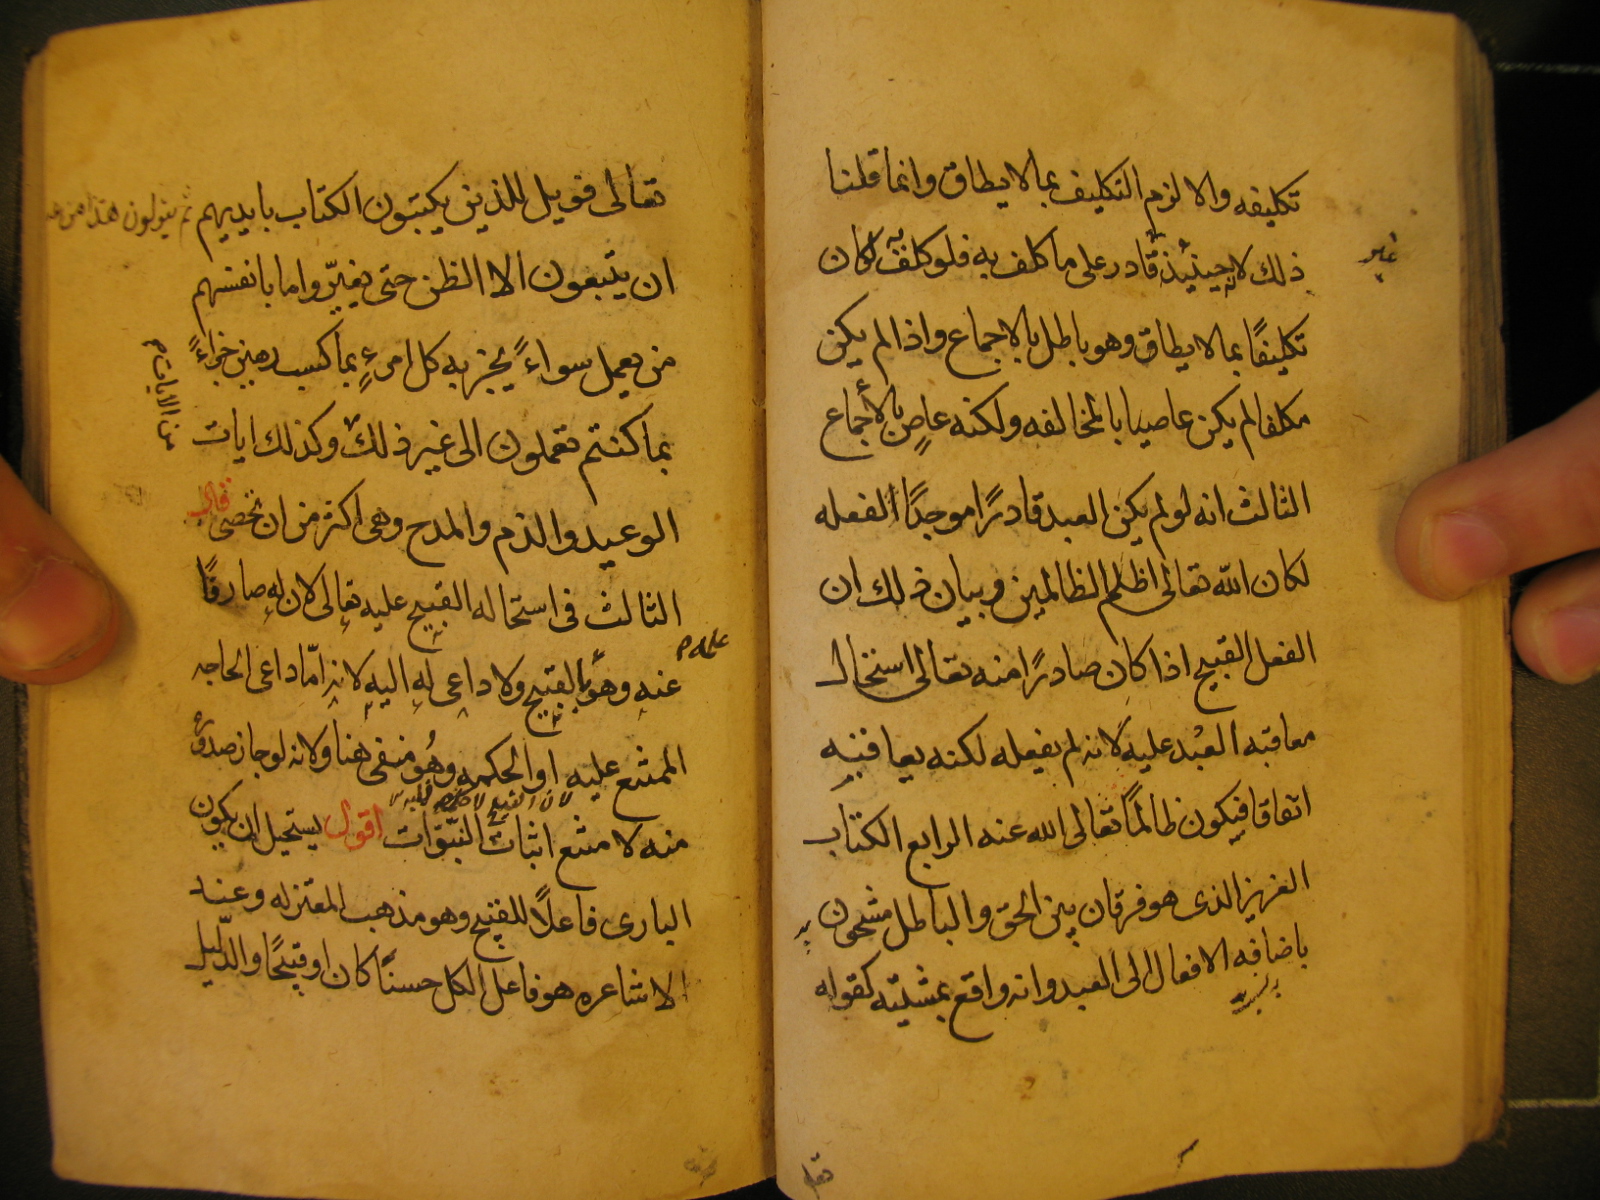 تكليفه والا لزم التكليف بما لا يطاق وانما قلنا
ذلك لانه حينئذ غير قادر على ما كلف به فلو كلف به لكان
تكليفًا بما لا يطاق وهو باطل بالاجماع واذا لم يكن
مكلفا لم يكن عاصيا بالمخالفه ولكنه عاصٍ بالأجماع
الثالث انه لو لم يكن العبد قادرًا موجدًا لفعله
لكان الله تعالى اظلم الظالمين وبيان ذلك ان
الفعل القبيح اذا كان صادرًا منه تعالى استحال
معاقبة العبد عليه لانه لم يفعله لكنه يعاقبه
اتفاقا فيكون ظالمًا تعالى الله عنه الرابع الكتاب
العزيز الذى هو فرقان بين الحق والباطل مشحون
باضافه الافعال الى العبد وانه واقع بمشيته كقوله
تعالى فويل للذين يكتبون الكتاب بايديهم ثم يقولون هذا من عند
ان يتبعون الا الظن حتى يغيّروا ما بانفسهم
من يعمل سواءً يجز به كل امرءٍ بما كسب رهين جزاءً
بما كنتم تعملون الى غير ذلك وكذلك ايات
من الايات
الوعيد والذم والمدح وهى اكثر من ان تحصى قال
الثالث فى استحاله القبيح عليه تعالى لان له صارفًا
عنه وهو العلم بالقبيح ولا داعى له اليه لانه امّا داعى الحاجه
الممتنع عليه او الحكمه وهُو منفى هنا ولانه لو جاز صدوره
منه لامتنع اثبات النبّوات اقول يستحيل ان يكون
البارى فاعلًا للقبيح وهو مذهب المعتزله وعند
الاشاعره هو فاعل الكل حسنًا كان او قبيحًا والدّليل